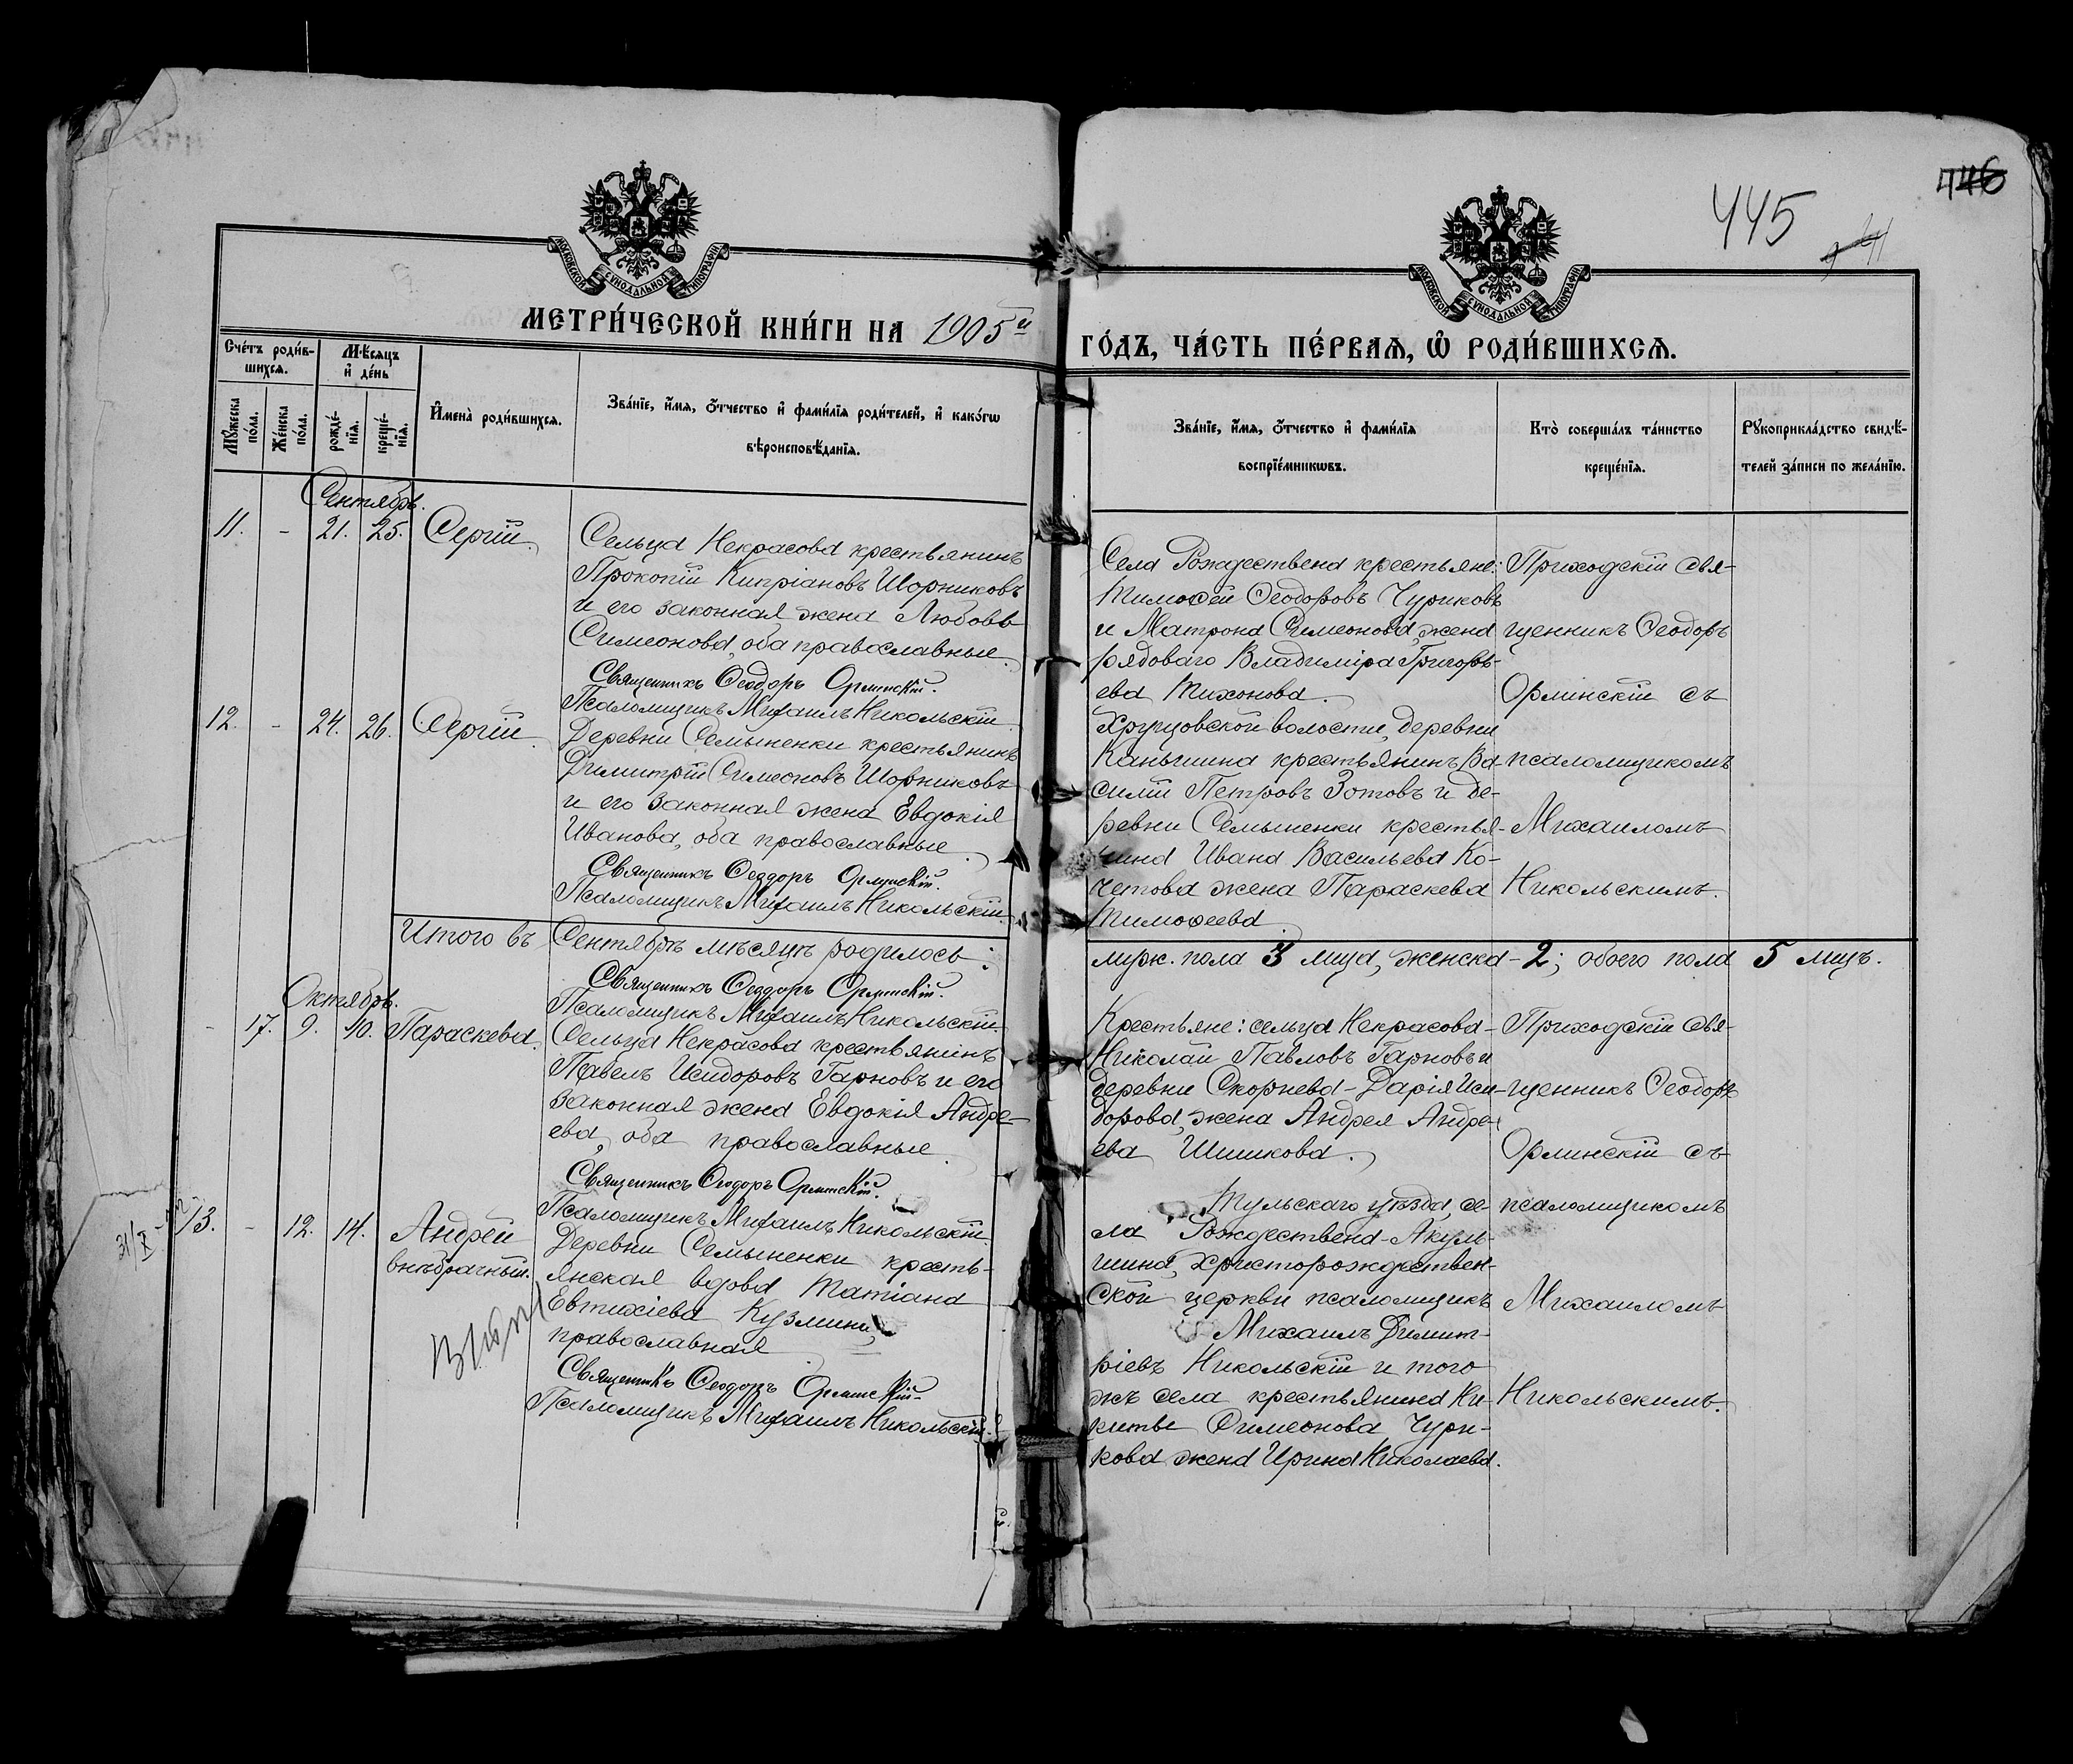 445
446
МОСКОВСКОЙ СѴНОДАЛЬНОЙ ТИПОГРАФІИ
МОСКОВСКОЙ СѴНОДАЛЬНОЙ ТИПОГРАФІИ
МЕТРИ́ЧЕСКОЙ КНИ́ГИ НА 1905й
ГО́ДЪ, ЧА́СТЬ ПЕ́РВАЯ, Ѡ РОДИ́ВШИХСЯ.
Сче́тъ роди́в-
шихся.
Мѣ́сяцъ
и҆ де́нь
Мꙋ́жеска
по́ла.
Же́нска
по́ла.
рожде́-
нїя.
креще́-
нїя.
И҆мена̀ роди́вшихся.
Зва́нїе, и҆́мя, ѻ҆́тчество и҆ фами́лїя роди́телей, и҆ како́гѡ
вѣроисповѣ́данїя.
Зва́нїе, и҆́мя, ѻ҆́тчество и҆ фами́лїя
воспрїе́мникѡвъ.
Кто̀ соверша́лъ та́инство
креще́нїя.
Рꙋкоприкла́дство свидѣ́-
телей за́писи по жела́нїю.
Сентябрь.
11. - 21. 25. Сергій.
Сельца Некрасова крестьянинъ
Прокопій Кипріановъ Шорниковъ
и его законная жена Любовь
Симеонова, оба православные.
Священникъ Ѳеодоръ Орлинскій.
Псаломщикъ Михаилъ Никольскій
Села Рождествена крестьяне:
Тимоѳей Ѳеодоровъ Чуриковъ
и Матрона Симеонова, жена
рядоваго Владиміра Григорь-
ева Тихонова.
Приходскій свя-
щенникъ Ѳеодоръ
Орлинскій съ
псаломщикомъ
Михаиломъ
Никольскимъ.
12. - 24. 26. Сергій.
Деревни Семыненки крестьянинъ
Димитрій Симеоновъ Шорниковъ
и его законная жена Евдокія
Иванова, оба православные.
Священникъ Ѳеодоръ Орлинскій.
Псаломщикъ Михаилъ Никольскій.
Хрущовской волости, деревни
Каньшина крестьянинъ Ва-
силій Петровъ Зотовъ и де-
ревни Семыненки крестья-
нина Ивана Васильева Ко-
четова жена Параскева
Тимоѳеева.
Итого въ Сентябрѣ мѣсяцѣ родилось:
муж. пола 3 лица, женска - 2; обоего пола 5 лицъ.
Священникъ Ѳеодоръ Орлинскій.
Псаломщикъ Михаилъ Никольскій.
Октябрь.
- 17. 9. 10. Параскева.
Сельца Некрасова крестьянинъ
Павелъ Исидоровъ Гарновъ и его
законная жена Евдокія Андре-
ева, оба православные.
Священникъ Ѳеодоръ Орлинскій.
Псаломщикъ Михаилъ Никольскій.
Крестьяне: сельца Некрасова -
Николай Павловъ Гарновъ и
деревни Скорнева - Дарія Иси-
дорова, жена Андрея Андре-
ева Шишкова.
Приходскій свя-
щенникъ Ѳеодоръ
Орлинскій съ
псаломщикомъ
Михаиломъ
Никольскимъ.
13. - 12. 14. Андрей
внѣбрачный.
Деревни Семыненки кресть-
янская вдова Татіана
Евтихіева Кузмина,
православная.
Священникъ Ѳеодоръ Орлинскій.
Псаломщикъ Михаилъ Никольскій.
Тульскаго уѣзда, се-
ла Рождествена-Акуль-
шина, Христорождествен-
ской церкви псаломщикъ
Михаилъ Димит-
ріевъ Никольскій и того
жъ села крестьянина Ни-
киты Симеонова Чури-
кова жена Ирина Николаева.